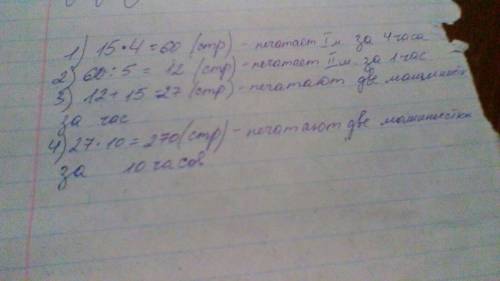 1) 15·4=60 (стр) - печатает I м. за 4 часа
2) 60:5 = 12 (стр) - печатает II м. за 1 час
3) 12+15=27 (стр) - печатают две машинистки
за час
4) 27·10=270 (стр) - печатают две машинистки
за 10 часов